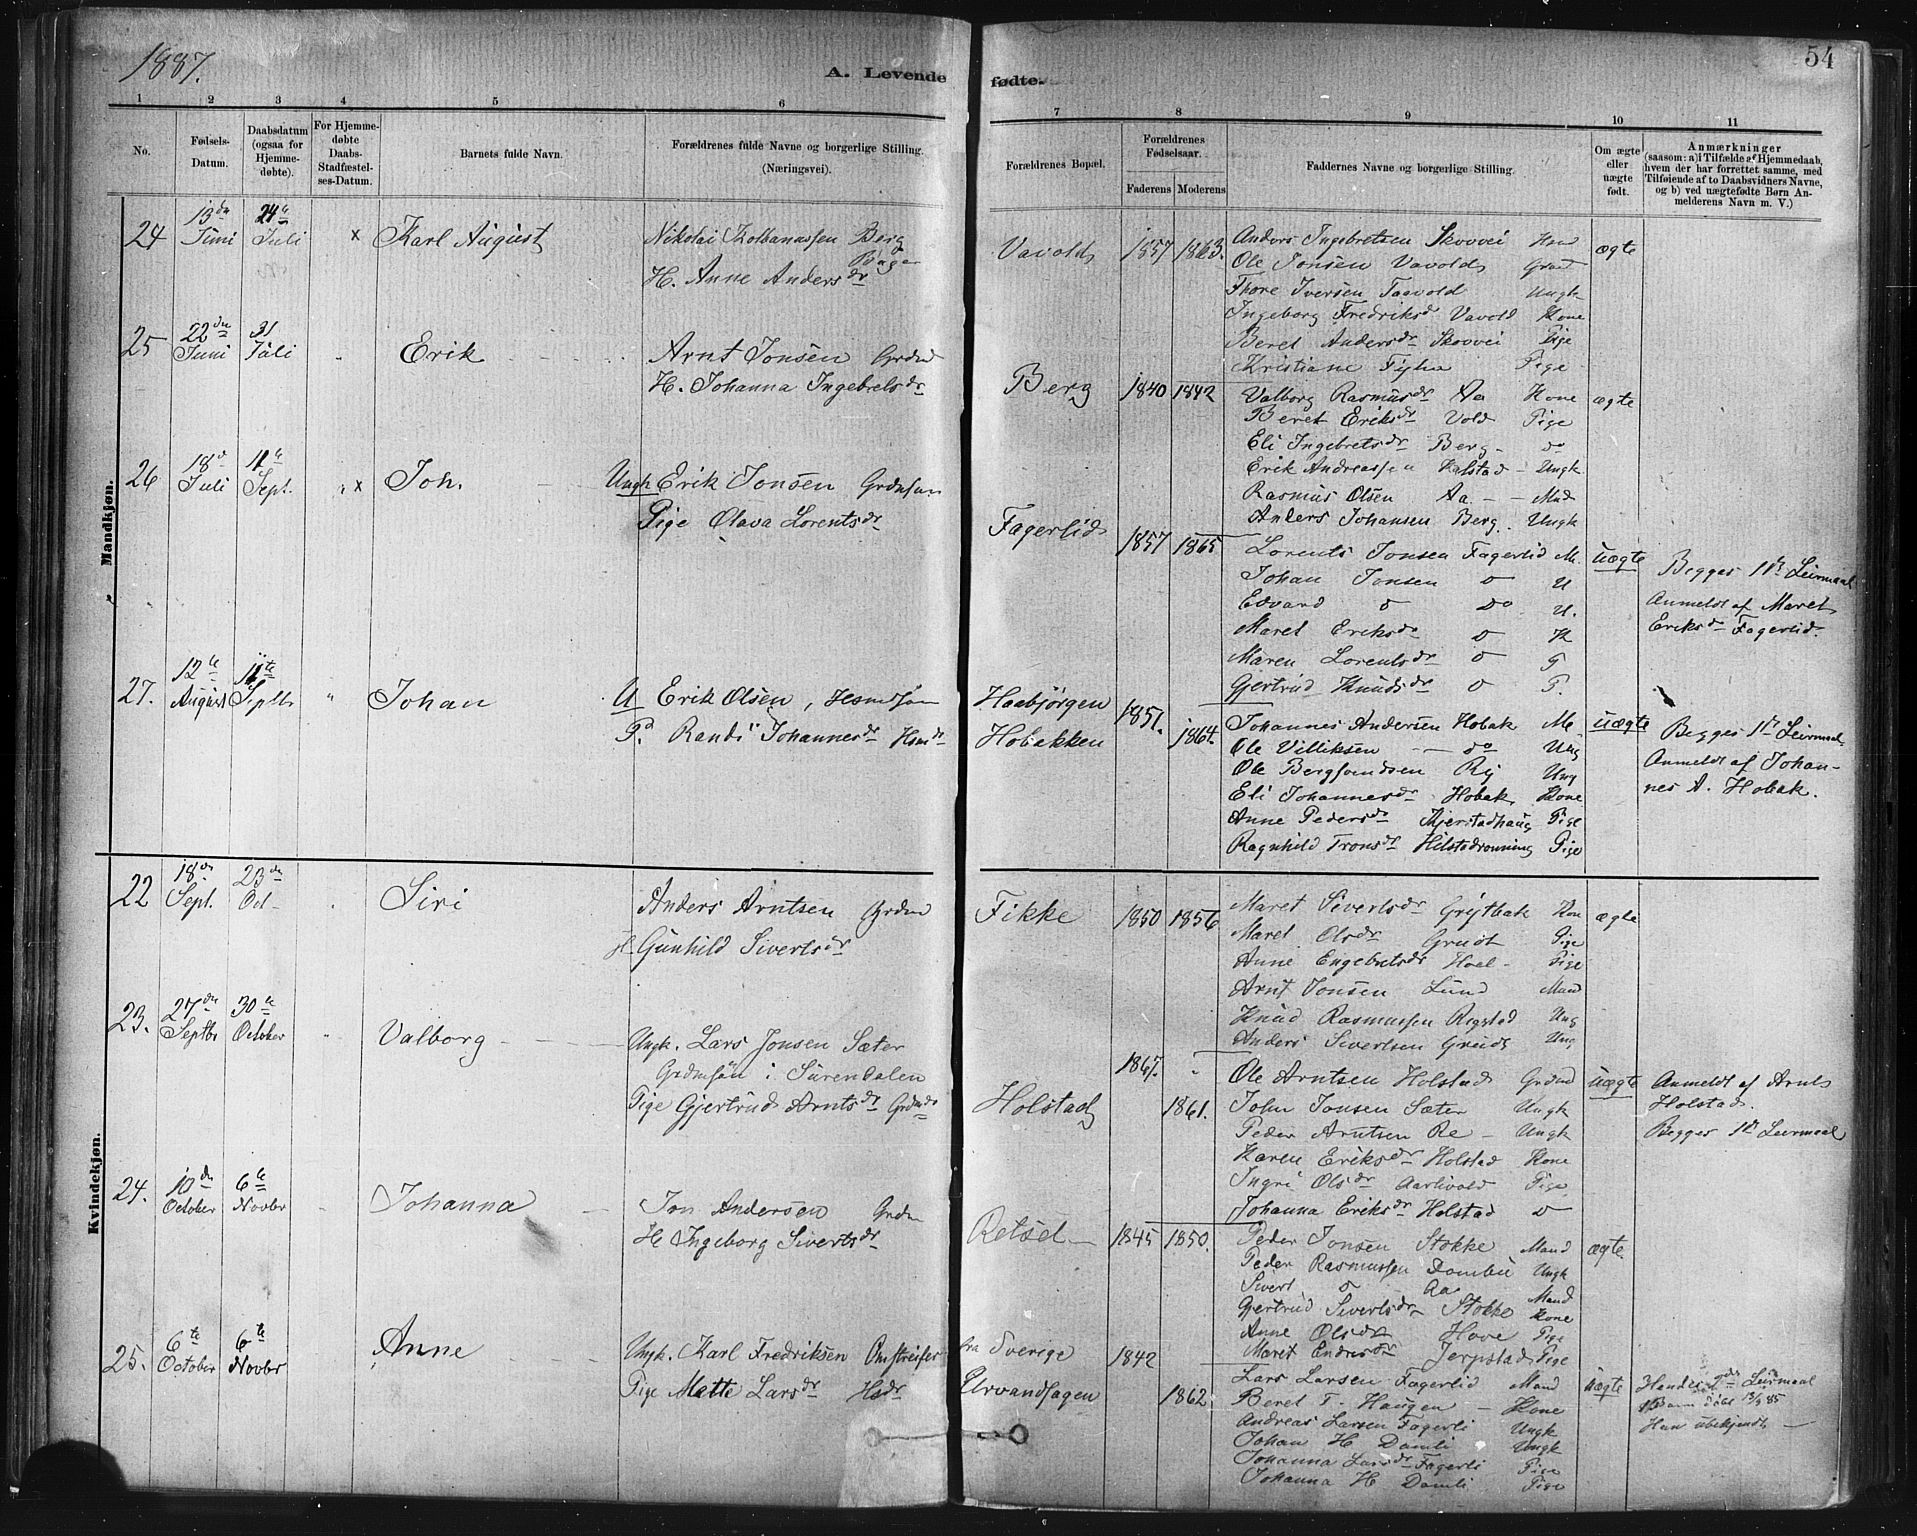 1887.
A. Levende
fødte.
54
1 2 3 4 5 6 7 8 9 10 11
No.
Fødsels-
Datum.
Daabsdatum
(ogsaa for
Hjemme-
døbte).
For Hjemme-
døbte
Daabs-
Stadfæstel-
ses-Datum.
Barnets fulde Navn.
Forældrenes fulde Navne og borgerlige Stilling.
(Næringsvei).
Forældrenes Bopæl.
Forældrenes
Fødselsaar.
Faderens Moderens
Faddernes Navne og borgerlige Stilling.
Om ægte
eller
uægte
født.
Anmærkninger
(saasom: a) i Tilfælde af Hjemmedaab,
hvem der har forrettet samme, med
Tilføiende af to Daabsvidners Navne,
og b) ved uægtefødte Børn An-
melderens Navn m. V.)
Mandkjøn.
24 13de Juni 24de Juli x Karl August
Nikolai Berg
H. Anne Andersdr
Vavold 1857 1863.
Anders Ingebretsen Skovvei
Ole Jonsen Vavold
Thore Iversen Ungk
Ingeborg Fredriksdr Vavold Kone
Beret Andersdr Skovvei Pige
Kristiane Pige
ægte
25 22de Juni 31 Juli " Erik
Arnt Jonsen Grdmd
H. Johanna Ingebretsdr
Berg 1840 1842
Valborg Rasmusdr Aa Kone
Beret Eriksdr Vold Pige
Eli Ingebretsdr Berg do
Erik Andreassen Halstad Ungk
Rasmus Olsen Aa Md
Anders Johansen Berg Ungk
ægte
26 18de Juli 11te Sept. x Joh.
Ungk Erik Jonsen Grdmsøn
Pige Olava Lorentsdr
Fagerlid 1857 1865
Lorents Jonsen Fagerlid M.
Johan Jonsen do U
Edvard do do U.
Maret Eriksdr do K
Maren Lorentsdr do P
Gjertrud Knudsdr do P.
uægte
Begges 1ste Leirmaal
Anmeldt af Maret
Eriksdr Fagerlid.
27. 12te August 11te Septbr " Johan
U Erik Olsen, Hsmdsøn
P. Randi Johannesdr Hsmdr
Haabjørgen
Hobakken
1851. 1864.
Johannes Andersen Hobak M.
Ole Villiksen do Ung
Ole Bergsvendsen Ry Ung
Eli Johannesdr Hobak Kone
Anne Pedersdr Kjerstadhaug Pige
Ragnhild Tronsdr Pige
uægte
Begges 1ste Leirmaal
Anmeldt af Johan-
nes A. Hobak.
Kvindekjøn.
22 18de Sept. 23de Oct. Siri
Anders Arntsen Grdmd
H Gunhild Sivertsdr
Fikke 1850 1856
Maret Sivertsdr Grytbak Kone
Maret Olsdr Grudt Pige
Anne Engebretsdr Hoel Pige
Arnt Jonsen Lund Mand
Knud Rasmussen Rigstad Ung
Anders Sivertsen Grudt Ung
ægte
23. 27de Septbr 30te October " Valborg
Ungk. Lars Jonsen Sæter
Grdmsøn i Surendalen
Pige Gjertrud Arntsdr Grdmdr
Holstad 1867. 1861.
Ole Arntsen Holstad Grdmd
John Jonsen Sæter Ungk
Peder Arntsen Re Ungk
Karen Eriksdr Holstad Kone
Ingri Olsdr Aarlivold Pige
Johanna Eriksdr Holstad do
uægte
Anmeldt af Arnt
Holstad.
Begges 1ste Leirmaal
24. 10de October 6te Novbr Johanna
Jon Andersen Grdm
H Ingeborg Sivertsdr
Retsel 1845 1850.
Peder Jonsen Stokke Mand
Peder Rasmussen Dombu Ungk
Sivert do Aa Mand
Gjertrud Sivertsdr Stokke Kone
Anne Olsdr Hove Pige
Maret Endresdr Jerpstad Pige
ægte
25. 6te October 6te Novbr Anne
Ungk. Karl Fredriksen Omstreifer
Pige Mette Larsdr Hsdr
fra Sverige
Urvandhagen
1842 1862
Lars Larsen Fagerlid Mand
Beret T. Haugen Kone
Andreas Larsen Fagerli Ungk
Johan H Damli Ungk
Johanna Larsdr Fagerli Pige
Johanna H Damli Pige
uægte
Hendes 2det Leirmaal
Han ubekjendt